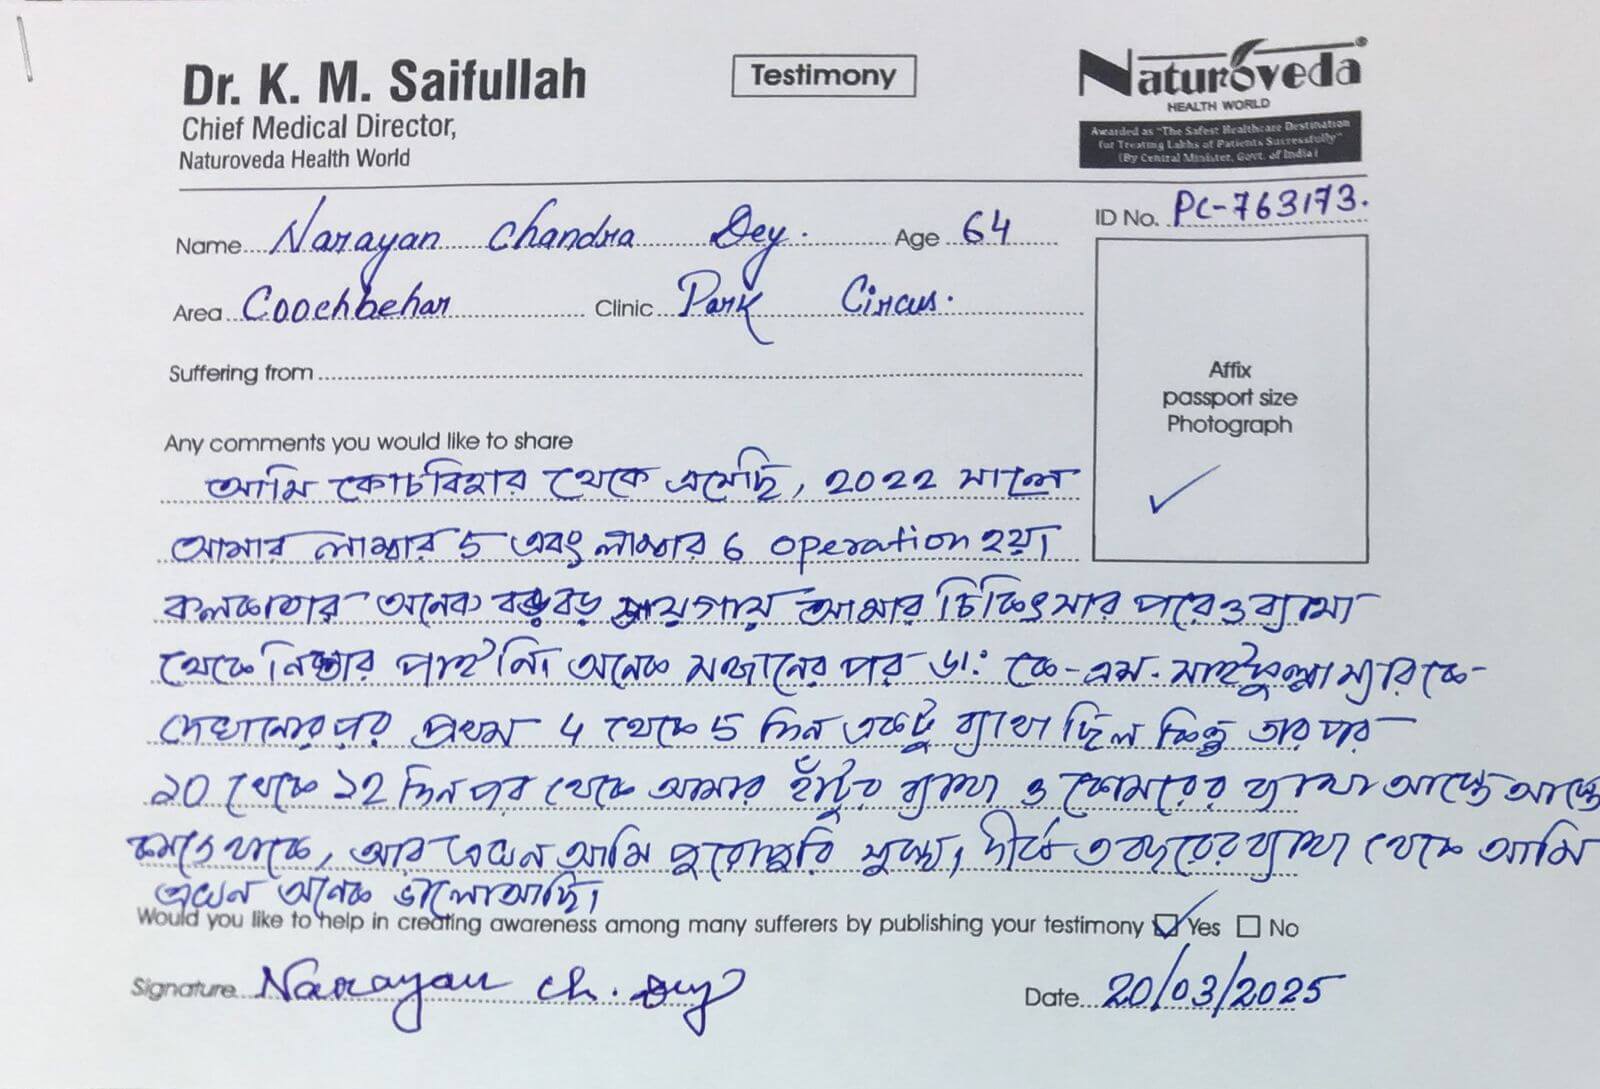 Dr. K. M. Saifullah
Chief Medical Director,
Naturoveda Health World
Testimony
Naturoveda®
HEALTH WORLD
Awarded as "The Safest Healthcare Destination
for Treating Lakhs of Patients Successfully"
(By Central Minister, Govt. of India)
Name Narayan Chandra Dey. Age 64
ID No. PC-763173.
Area Coochbehar Clinic Park Circus.
Suffering from
Affix
passport size
Photograph
Any comments you would like to share
আমি কোচবিহার থেকে এসেছি, 2022 সালে
আমার লাম্বার 5 এবং লাম্বার 6 operation হয়।
কলকাতার অনেক বড় বড় জায়গায় আমার চিকিৎসার পরেও ব্যাথা
থেকে নিস্তার পাই নি। অনেক সন্ধানের পর ডা: কে-এম. সাইফুল্লা স্যারকে
দেখানোর পর প্রথম 4 থেকে 5 দিন একটু ব্যাথা ছিল কিন্তু তারপর
১0 থেকে ১2 দিন পর থেকে আমার হাঁটুর ব্যাথা ও কোমরের ব্যাথা আস্তে আস্তে
কমতে থাকে, আর এখন আমি পুরোপুরি সুস্থ্য, দীর্ঘ ৩ বছরের ব্যাথা থেকে আমি
এখন অনেক ভালো আছি।
Would you like to help in creating awareness among many sufferers by publishing your testimony Yes No
Signature Narayan Ch. Dey
Date 20/03/2025